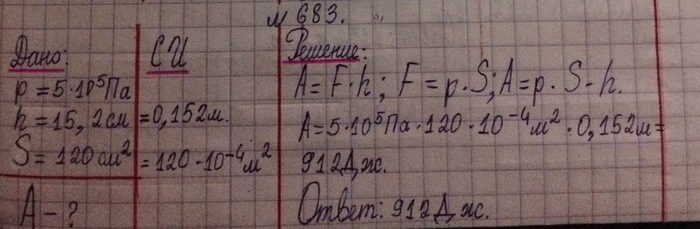 № 683.
Дано:
p = 5·10⁵Па
h = 15, 2 см
S = 120 см²
A - ?
СИ
= 0,152м.
= 120·10⁻⁴м²
Решение:
A = F·h; F = p·S; A = p·S·h.
A = 5·10⁵Па·120·10⁻⁴м²·0,152м=
912Дж.
Ответ: 912Дж.